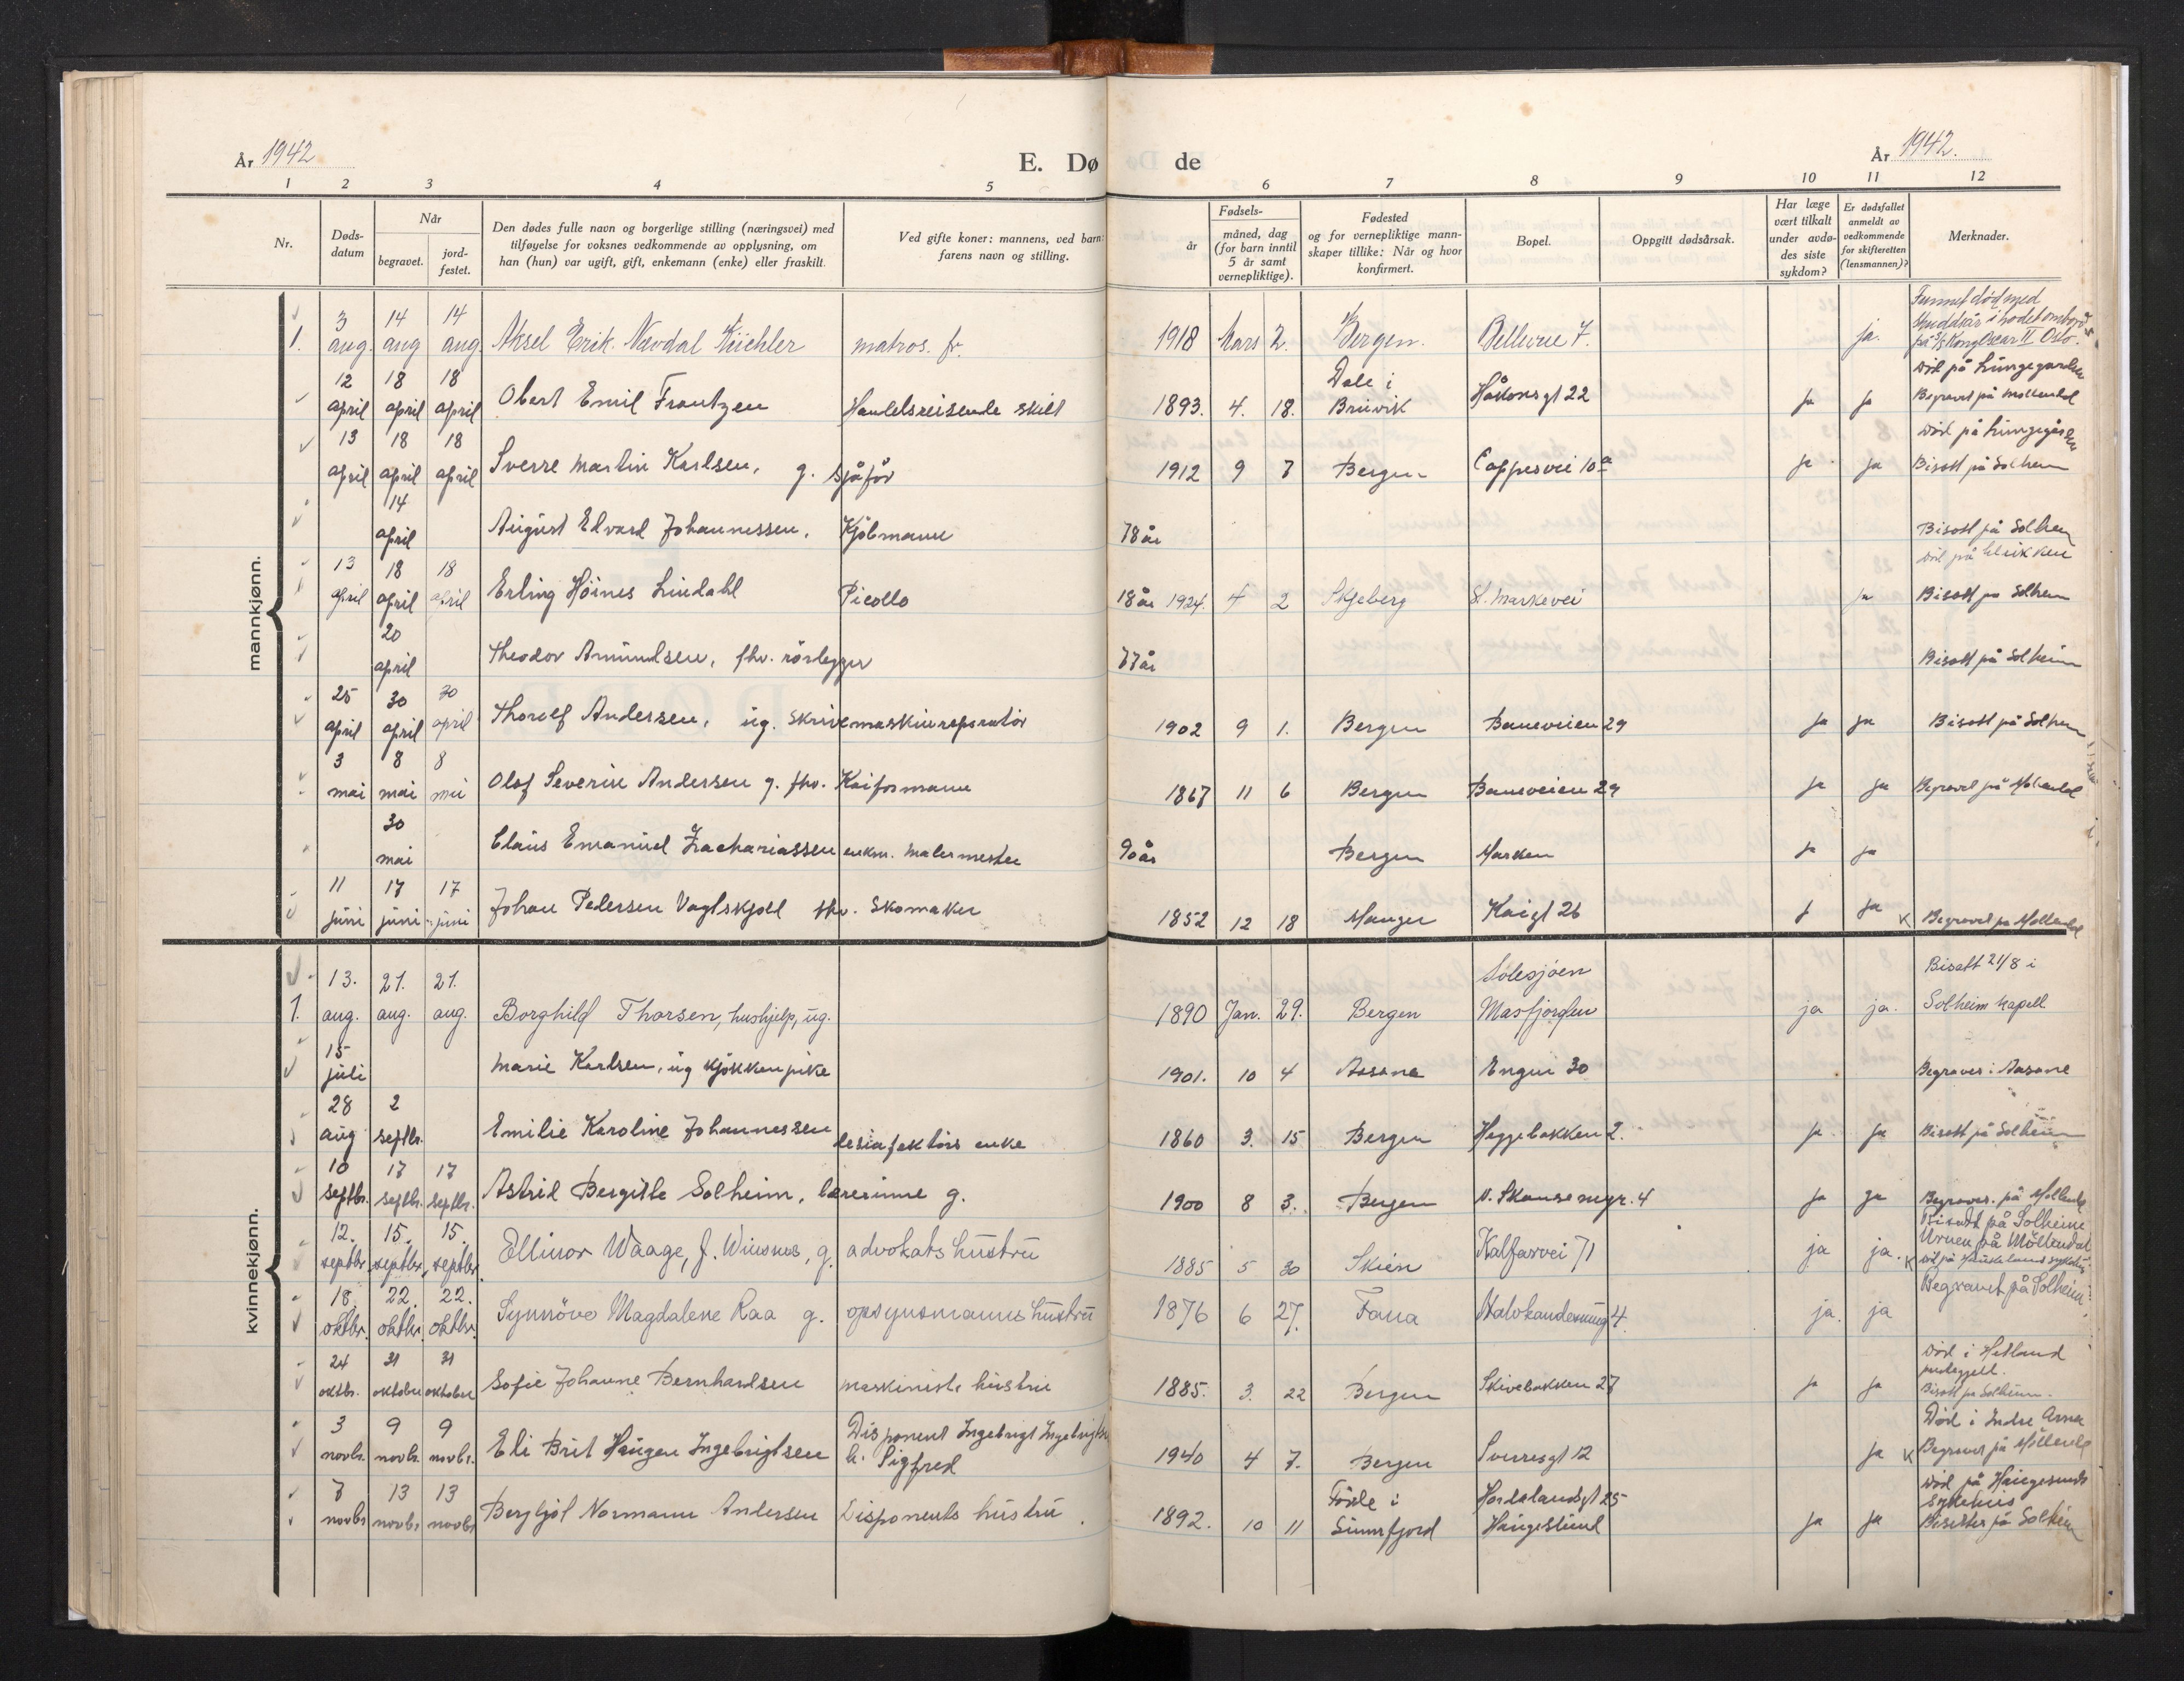 År 1942 E. Dø de År 1942.
1 2 3 4 5 6 7 8 9 10 11 12
Nr.
Døds-
datum
Når
begravet.
jord-
festet.
Den dødes fulle navn og borgerlige stilling (næringsvei) med
tilføyelse for voksnes vedkommende av opplysning, om
han (hun) var ugift, gift, enkemann (enke) eller fraskilt.
Ved gifte koner: mannens, ved barn:
farens navn og stilling.
år
Fødsels-
måned, dag
(for barn inntil
5 år samt
vernepliktige).
Fødested
og for vernepliktige mann-
skaper tillike: Når og hvor
konfirmert.
Bopel.
Oppgitt dødsårsak.
Har læge
vært tilkalt
under avdø-
des siste
sykdom?
Er dødsfallet
anmeldt av
vedkommende
for skifteretten
(lensmannen)?
Merknader.
mannkjønn.
3 14 14 Funnet død med
skuddsår i hodet ombord
1. aug. aug aug. Aksel Erik Nævdal Küchler matros. fr. 1918 Mars 2. Bergen. Bellevue 7. ja. på S/S Kong Oscar II Oslo.
12 18 18 Dale i død på Lungegården
april april april Obert Emil Frantzen Handelsreisende skilt 1893. 4. 18. Bruvik Håkonsgt 22 ja ja Begravet på Møllendal
13 18 18 død på Lungegården
april april april Sverre Martin Karlsen, g. sjåfør 1912 9 7 Bergen Coppesvei 10a ja ja Bisatt på Solheim
14
april August Edvard Johannessen, Kjøbmann 78 år Bisatt på Solheim
13 18 18 død på klinikken
april april april Erling Höines Lindahl Picollo 18 år 1924. 4 2 Skjeberg St. Markevei ja Bisatt på Solheim
20
april Theodor Amundsen, fhv. rörlegger 77 år Bisatt på Solheim
25 30 30
april april april Thorolf Andersen, ug. Skrivemaskinreparatör 1902 9 1. Bergen Baneveien 29 ja ja Bisatt på Solheim
3 8 8
mai mai mai Olaf Severin Andersen g. fhv. Kaiformann 1867 11 6 Bergen Baneveien 29 ja ja Begravet på Møllendal
30
mai Claus Emanuel Zachariassen enkm. Malermester 90 år Bergen Marken ja ja
11 17 17
juni juni juni Johan Pedersen Vagtskjold fhv. Skomaker 1852 12 18 Manger Kaigt 26 j ja x Begravet på Møllendal
kvinnekjønn.
13. 21. 21. Solesjöen Bisatt 21/8 i
1. aug. aug. aug. Borghild Thorsen, hushjelp, ug. 1890 Jan. 29. Bergen Masfjorden ja ja. Solheim kapell
15
juli Marie Karlsen, ug kjøkkenpike 1901. 10 4 Aasane Engen 30 Begraves i Aasane
28 2
aug septbr. Emilie Karoline Johannessen desinfektörs enke 1860 3. 15 Bergen Heggebakken 2. ja ja Bisatt på Solheim
10 17 17
septbr. septbr. septbr. Astrid Bergitte Solheim, lærerinne g. 1900 8 3. Bergen N. Skansemyr. 4 ja ja Begraves. på Møllendal
12. 15. 15. Bisatt på Solheim
Urnen på Möllendal
septbr. septbr. septbr. Ellinor Waage, f. Winsnes, g. advokats hustru 1885 5 30 Skien Kalfarvei 71 ja ja. x død på Haukelands sykehus
18. 22. 22. Begravet på Solheim
oktbr. oktbr. oktbr. Synnöve Magdalene Raa g. opsynsmanns hustru 1876 6 27. Fana Halvkandesmug 4. ja. ja
24 31 31 död i Hetland
prestegjeld.
oktbr. oktober oktober Sofie Johanne Bernhardsen maskinists hustru 1885. 3. 22 Bergen Skivebakken 27 ja ja Bisatt på Solheim.
3 9 9 Disponent Ingebrigt Ingebrigtsen Död i Indre Arna
novbr. novbr. novbr. Eli Brit Haugen Ingebrigtsen h. Sigfred 1940 4 7. Bergen Sverresgt 12 ja x Begravet på Möllendal
7 13 13 Förde i Hordalandsgt 25 död på Haugesunds
sykehus
novbr novbr. novbr Bergljot Normann Andersen Disponents hustru. 1892. 10 11 Sunnfjord Haugesund ja ja Bisettes på Solheim